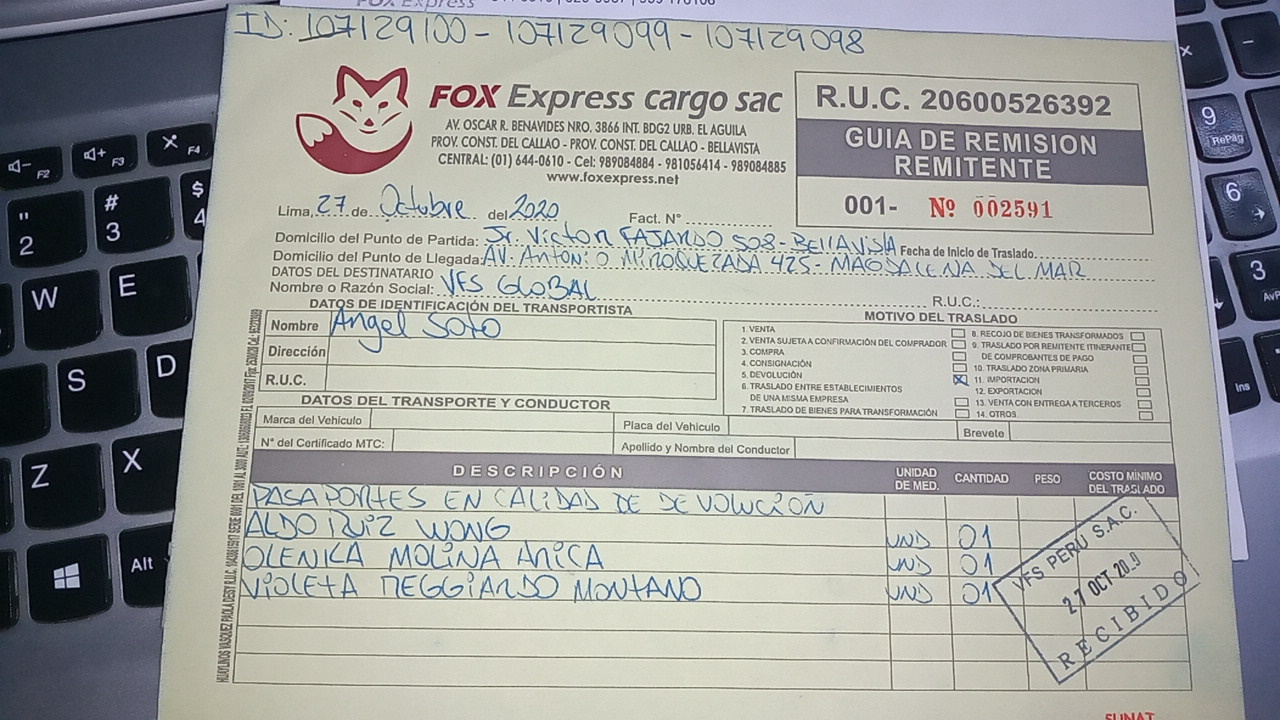 ID: 107129100 - 107129099 - 107129098
FOX Express cargo sac
AV. OSCAR R. BENAVIDES NRO. 3866 INT. BDG2 URB. EL AGUILA
PROV. CONST. DEL CALLAO - PROV. CONST. DEL CALLAO - BELLAVISTA
CENTRAL: (01) 644-0610 - Cel: 989084884 - 981056414 - 989084885
www.foxexpress.net
R.U.C. 20600526392
GUIA DE REMISION
REMITENTE
001- Nº 002591
Lima, 27 de Octubre del 2020 Fact. N°
Domicilio del Punto de Partida: Jr. Victor FAJARDO 508 - BELLAVISTA Fecha de Inicio de Traslado
Domicilio del Punto de Llegada: AV. Antonio MIROQUEZADA 425 - MAGDALENA DEL MAR
DATOS DEL DESTINATARIO
Nombre o Razón Social: VFS GLOBAL R.U.C.:
DATOS DE IDENTIFICACIÓN DEL TRANSPORTISTA
Nombre Angel SOTO
Dirección
R.U.C.
MOTIVO DEL TRASLADO
1. VENTA
2. VENTA SUJETA A CONFIRMACIÓN DEL COMPRADOR
3. COMPRA
4. CONSIGNACIÓN
5. DEVOLUCIÓN
6. TRASLADO ENTRE ESTABLECIMIENTOS
DE UNA MISMA EMPRESA
7. TRASLADO DE BIENES PARA TRANSFORMACIÓN
8. RECOJO DE BIENES TRANSFORMADOS
9. TRASLADO POR REMITENTE ITINERANTE
DE COMPROBANTES DE PAGO
10. TRASLADO ZONA PRIMARIA
11. IMPORTACION
12. EXPORTACION
13. VENTA CON ENTREGA A TERCEROS
14. OTROS
DATOS DEL TRANSPORTE Y CONDUCTOR
Marca del Vehículo Placa del Vehículo Brevete
N° del Certificado MTC: Apellido y Nombre del Conductor
DESCRIPCIÓN UNIDAD DE MED. CANTIDAD PESO COSTO MÍNIMO DEL TRASLADO
PASAPORTES EN CALIDAD DE DEVOLUCIÓN
ALDO RUIZ WONG UND 01
OLENKA MOLINA ARICA UND 01
VIOLETA MEGGIARDO MONTANO UND 01
VFS PERU S.A.C.
27 OCT
RECIBIDO
SUNAT